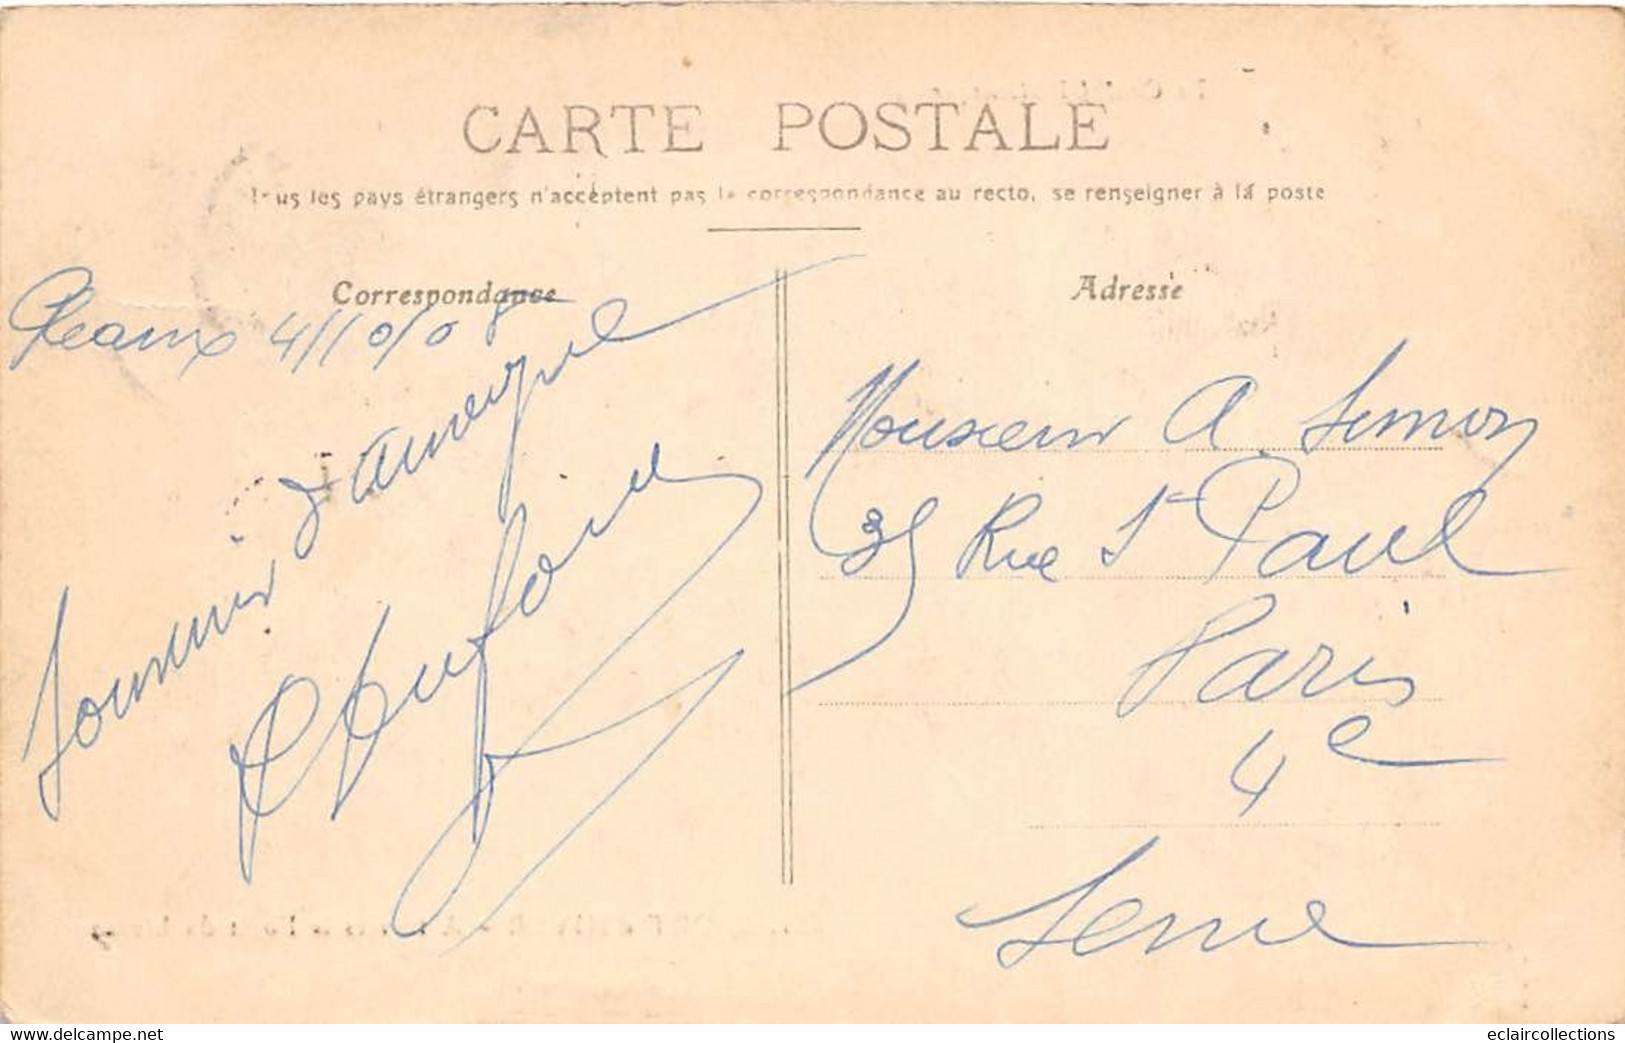 CARTE POSTALE
Tous les pays étrangers n'acceptent pas la correspondance au recto, se renseigner à la poste
Correspondance
Adresse
Pleaux 4/10/08
Souvenir d'auvergne
Monsieur A Simon
35 Rue St Paul
Paris
4e
Seine
www.delcampe.net
eclaircollections